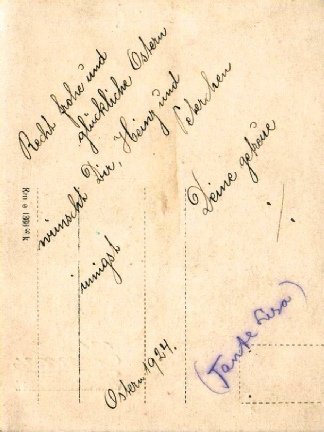 Recht frohe und
glückliche Ostern
wünscht Dir, Heinz und
Peterchen
innigst
Deine getreue
Ostern 1924.
(Tante Lisa)